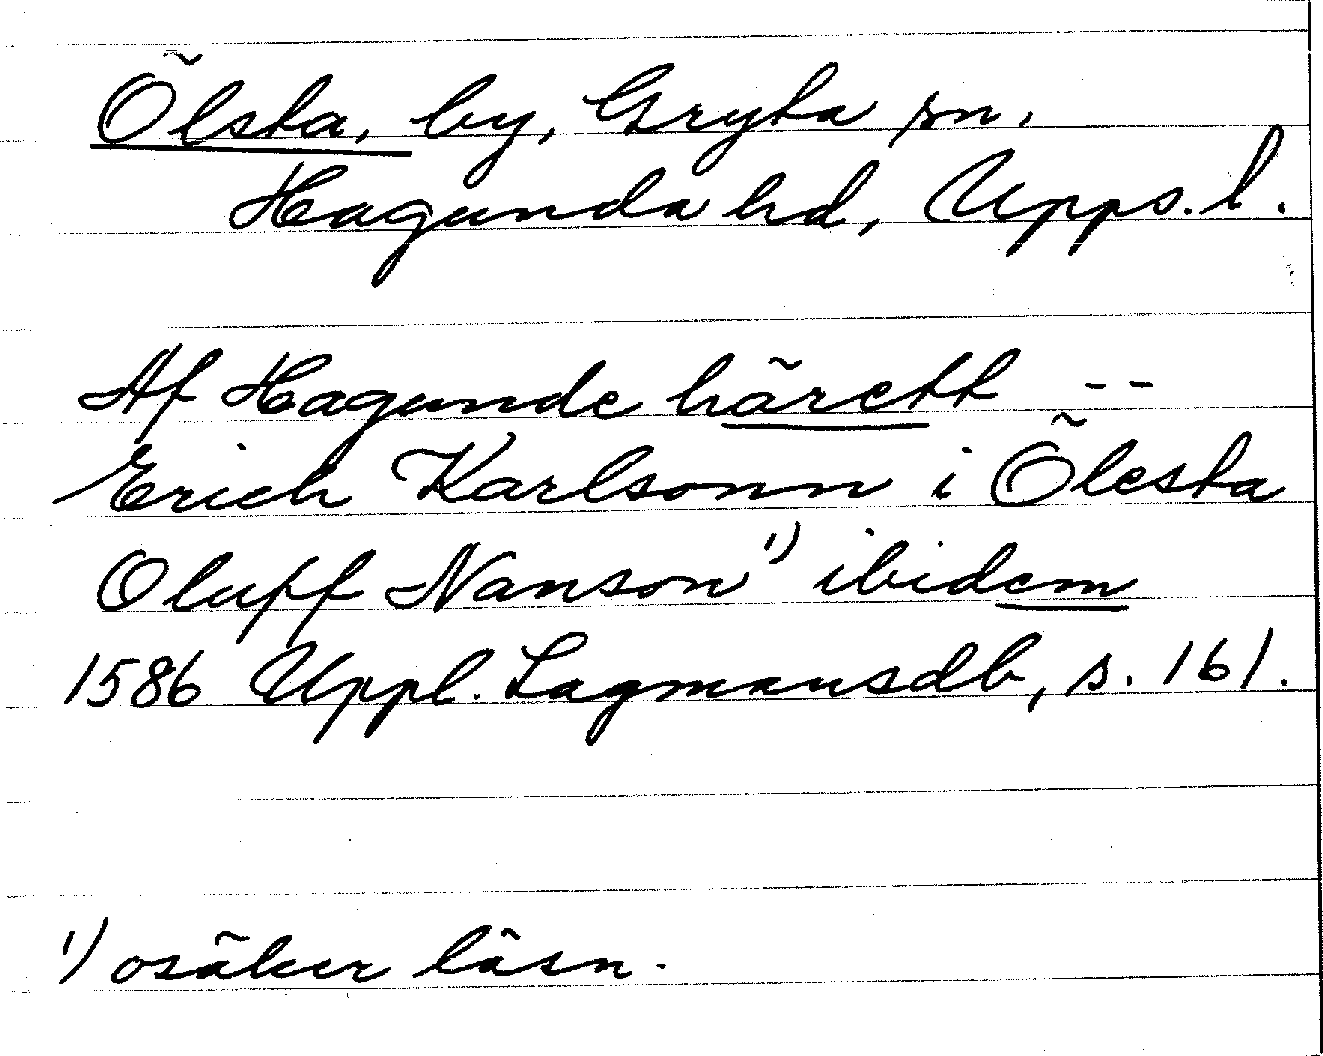 Ölsta, by, Gryta sn.
Hagunda hd, Upps. l.
Af Hagunde härett --
Erich Karlsonn i Ölesta
Oluff Nanson¹⁾ ibidem
1586 Uppl. Lagmansdb, s. 161.
¹⁾ osäker läsn.